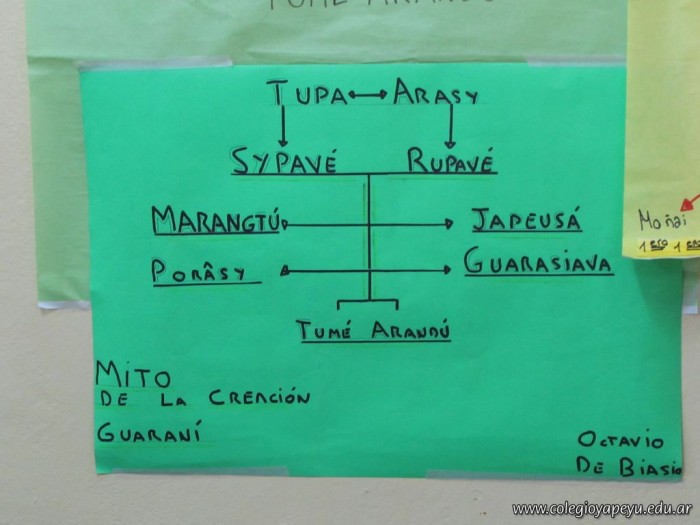 TUMÉ ARANDÚ
TUPA ARASY
SYPAVÉ RUPAVÉ
MARANGTÚ JAPEUSÁ
PORÂSY GUARASIAVA
TUMÉ ARANDÚ
MITO
DE LA CREACIÓN
GUARANÍ
OCTAVIO
DE BIASIO
Moñai
1 ero 1 ero
www.colegioyapeyu.edu.ar